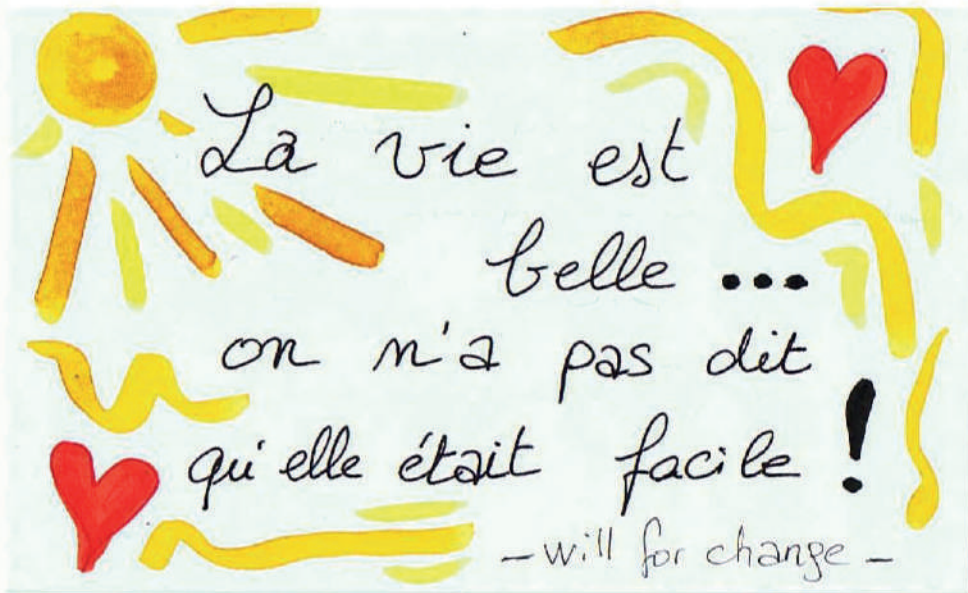 La vie est
belle ...
on n'a pas dit
qu'elle était facile !
- will for change -